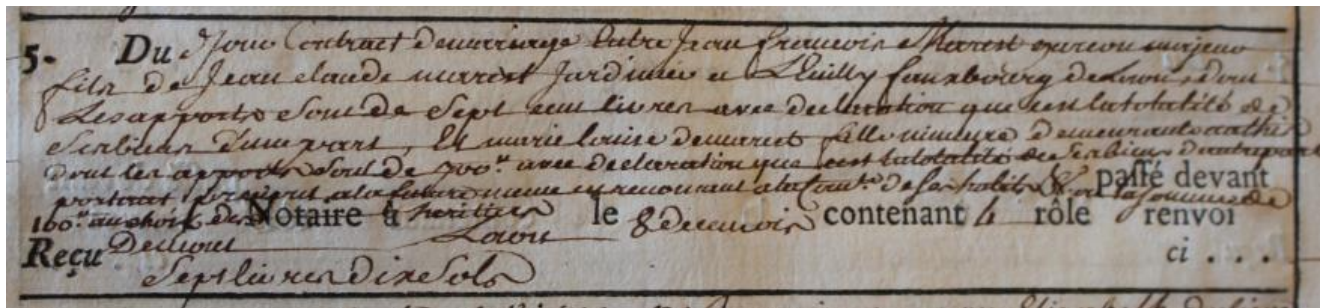 5. Du Jour Contract de mariage Entre Jean francois Marest garcon majeur
fils de Jean claude marest Jardinier a Leuilly fauxbourg de Laon, dont
Les apports sont de Sept cent livres avec declaration que cest la totalité de
Ses biens d'une part, Et marie louise demarest fille mineure demeurante a athie
dont les apports sont de 700tt avec declaration que cest la totalité de Ses biens d'autre part
portant a la future meme en renonçant a la de Ses habits &c la somme de passé devant
100tt au choix des heritiers Notaire à Laon le 8 de ce mois contenant 4 rôle renvoi
Reçu ci . . .
Sept livres dix Sols